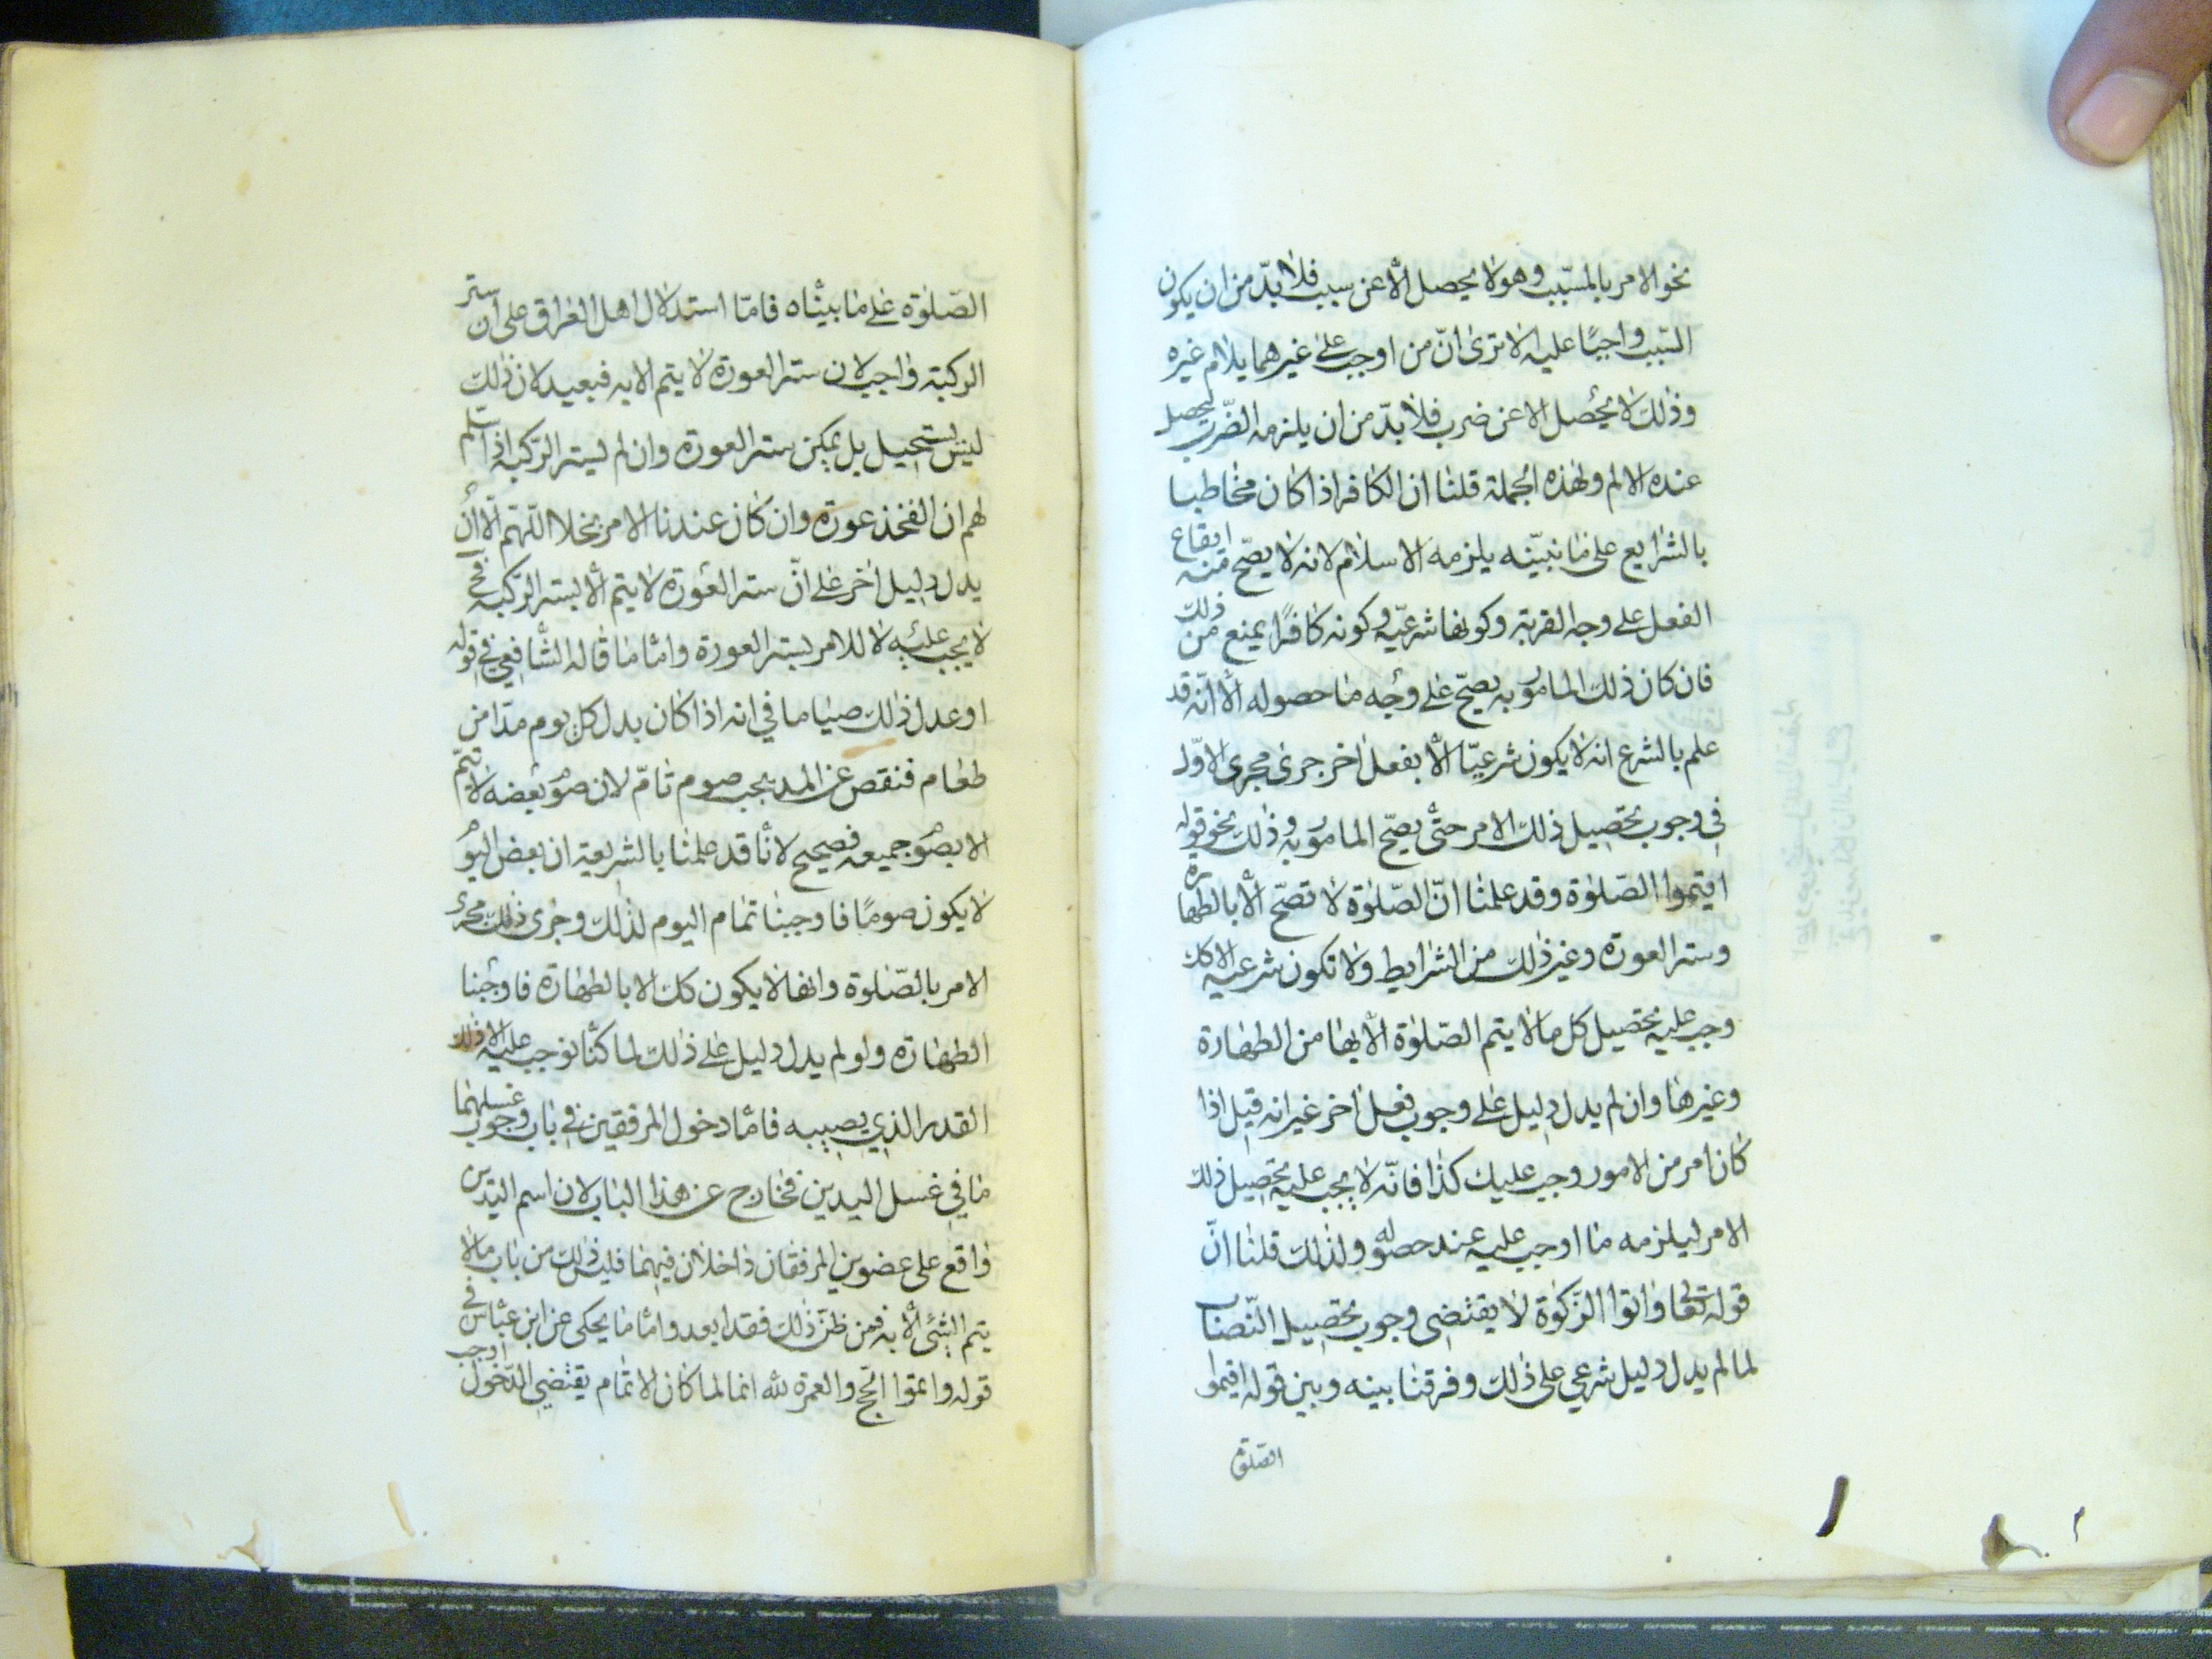 نحو الامر بالمسبّب وهو لا يحصل الّا عن سبب فلا بدّ من ان يكون
السّبب واجبًا عليه الا ترى انّ من اوجب على غيره ايلام غيره
وذلك لا يحصل الا عن ضرب فلا بدّ من ان يلزمه الضّرب ليحصل
عنده الالم ولهذه الجملة قلنا ان الكافر اذا كان مخاطبا
بالشرايع على ما نبيّنه يلزمه الاسلام لانه لا يصحّ منه ايقاع
الفعل على وجه القربة وكونها شرعيّة وكونه كافرًا يمنع من ذلك
فان كان ذلك المامور به يصحّ على وجه ما حصوله الّا انّه قد
علم بالشرع انه لا يكون شرعيّا الّا بفعل اخر جرى مجرى الاوّل
في وجوب تحصيل ذلك الامر حتّى يصحّ المامور به وذلك نحو قوله
اقيموا الصّلوة وقد علمنا انّ الصّلوة لا تصحّ الّا بالطهارة
وستر العورة وغير ذلك من الشرايط ولا تكون شرعية الا كك
وجب عليه تحصيل كل ما لا يتم الصّلوة الّا بها من الطهارة
وغيرها وان لم يدل دليل على وجوب فعل اخر غير انه قيل اذا
كان امر من الامور وجب عليك كذا فانّه لا يجب عليه تحصيل ذلك
الامر ليلزمه ما اوجب عليه عند حصوله ولذلك قلنا انّ
قوله تعا واتوا الزّكوة لا يقتضي وجوب تحصيل النّصاب
لما لم يدل دليل شرعي على ذلك وفرقنا بينه وبين قوله اقيموا
الصّلوة
الصّلوة على ما بيّناه فامّا استدلال اهل العراق على ان ستر
الركبة واجب لان ستر العورة لا يتم الا به فبعيد لان ذلك
ليس بستحيل بل يمكن ستر العورة وان لم يستر الرّكبة اذا سلّم
لهم ان الفخذ عورة وان كان عندنا الامر بخلا اللّهمّ الّا ان
يدل دليل اخر على انّ ستر العورة لا يتم الّا بستر الرّكبة فح
لا يجب عليه لا للامر بستر العورة وامّا ما قاله الشّافعي في قوله
او عدل ذلك صياما في انه اذا كان بدل كل يوم مدّا من
طعام فنقص عن المد يجب صوم تامّ لان صوم بعضه لا يتمّ
الا بصوم جميعه فصحيح لانّا قد علمنا بالشريعة ان بعض اليوم
لا يكون صومًا فاوجبنا تمام اليوم لذلك وجرى ذلك مجرى
الامر بالصّلوة وانها لا يكون كك الا بالطهارة فاوجبنا
الطهارة ولو لم يدل دليل على ذلك لما كنّا نوجب عليه الا ذلك
القدر الذي يصيبه فامّا دخول المرفقين في باب وجوب غسلهما
ما في غسل اليدين فخارج عن هذا الباب لان اسم اليدين
واقع على عضوين المرفقان داخلان فيهما فليس ذلك من باب ما لا
يتم الشّئ الّا به فمن ظنّ ذلك فقد ابعد وامّا ما يحكى عن ابن عبّاس في
قوله واتموا الحجّ والعمرة لله انها لما كان الاتمام يقتضي الدّخول اوجب